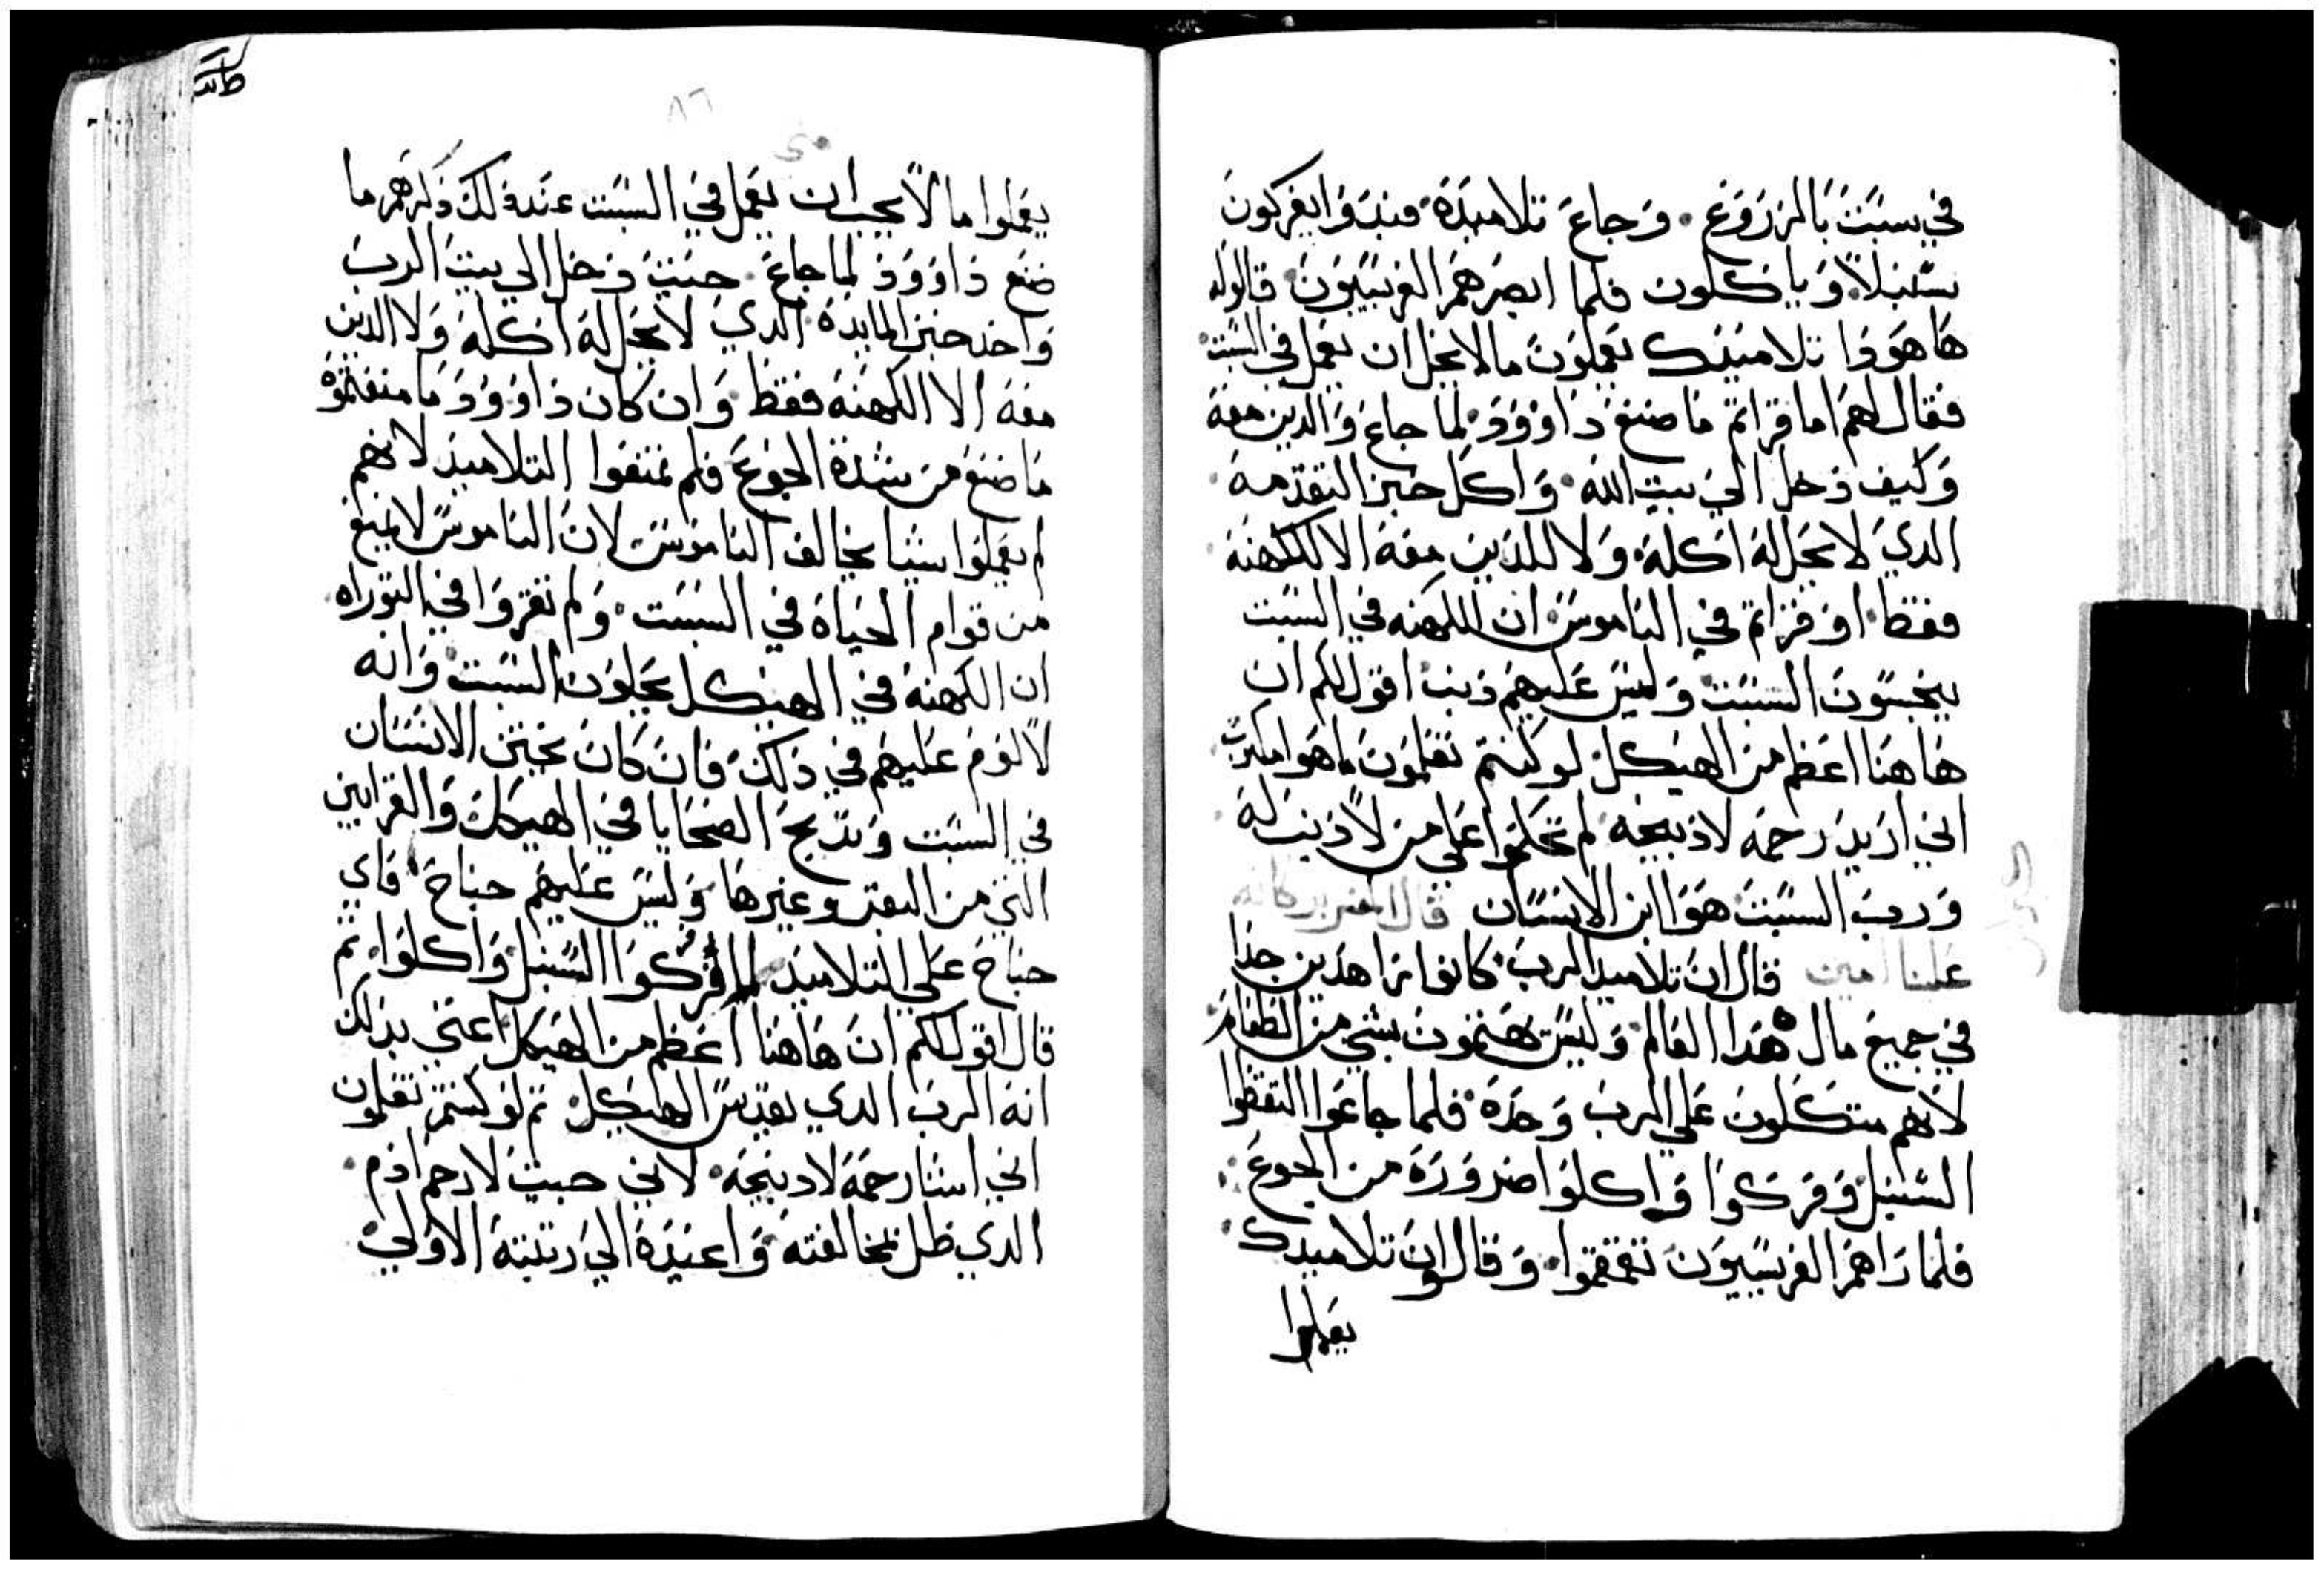 في سبت بالزروع. وجاع تلاميذه فبدوا يفركون
سنبلاً وياكلون فلما ابصرهم الفريسيون قالوا له
ها هوذا تلاميذك يعملون ما لا يحل ان يعمل في السبت
فقال لهم اما قراتم ما صنع داوود لما جاع والذين معه
وكيف دخل الي بيت الله واكل خبز التقدمة
الذي لا يحل له اكله ولا للذين معه الا للكهنة
فقط او قراتم في الناموس ان الكهنه في السبت
ينجسون السبت وليس عليهم ذنب اقول لكم ان
هاهنا اعظم من الهيكل لو كنتم تعلمون ما هو مكتوب
اني اريد رحمه لا ذبيحه لم تحكموا علي من لا ذنب له
ورب السبت هو ابن الانسان قال المفسر بركاته
علينا امين قال ان تلاميذ الرب كانوا زاهدين جدا
في جميع مال هذا العالم وليس يهتمون بشي من الطعام
لانهم متكلون علي الرب وحده فلما جاعوا التقطوا
السنبل وفركوا واكلوا ضرورة من الجوع
فلما راهم الفريسيون تقمقموا وقالوا ان تلاميذك
يعملوا
٨٦
متي
يعملوا ما لا يجب ان يعمل في السبت عند ذلك ذكرهم ما
صنع داوود لما جاع. حيت دخل الي بيت الرب
واخذ خبز المايدة الذي لا يحل له اكله ولا الذين
معه الا الكهنه فقط وان كان داوود ما منعتموه
ما صنع من شدة الجوع فلم تمنعوا التلاميذ لانهم
لم يعملوا شيا يخالف الناموس لان الناموس لا يمنع
من قوام الحياة في السبت ولم تقروا في التوراه
ان الكهنة في الهيكل يحلون السبت وانه
لا لوم عليهم في ذلك فان كان يختن الانسان
في السبت وتذبح الضحايا في الهيكل والقرابين
التي من البقر وغيرها وليس عليهم جناح فاي
جناح علي التلاميذ لما فركوا السنبل واكلوا ثم
قال اقول لكم ان هاهنا اعظم من الهيكل اعني بذلك
انه الرب الذي يقدس الهيكل ثم لو كنتم تعلمون
اني اشا رحمة لا ذبيحة لاني جيت لارحم ادم
الذي ضل بمخالفته واعيده الي رتبته الاولي